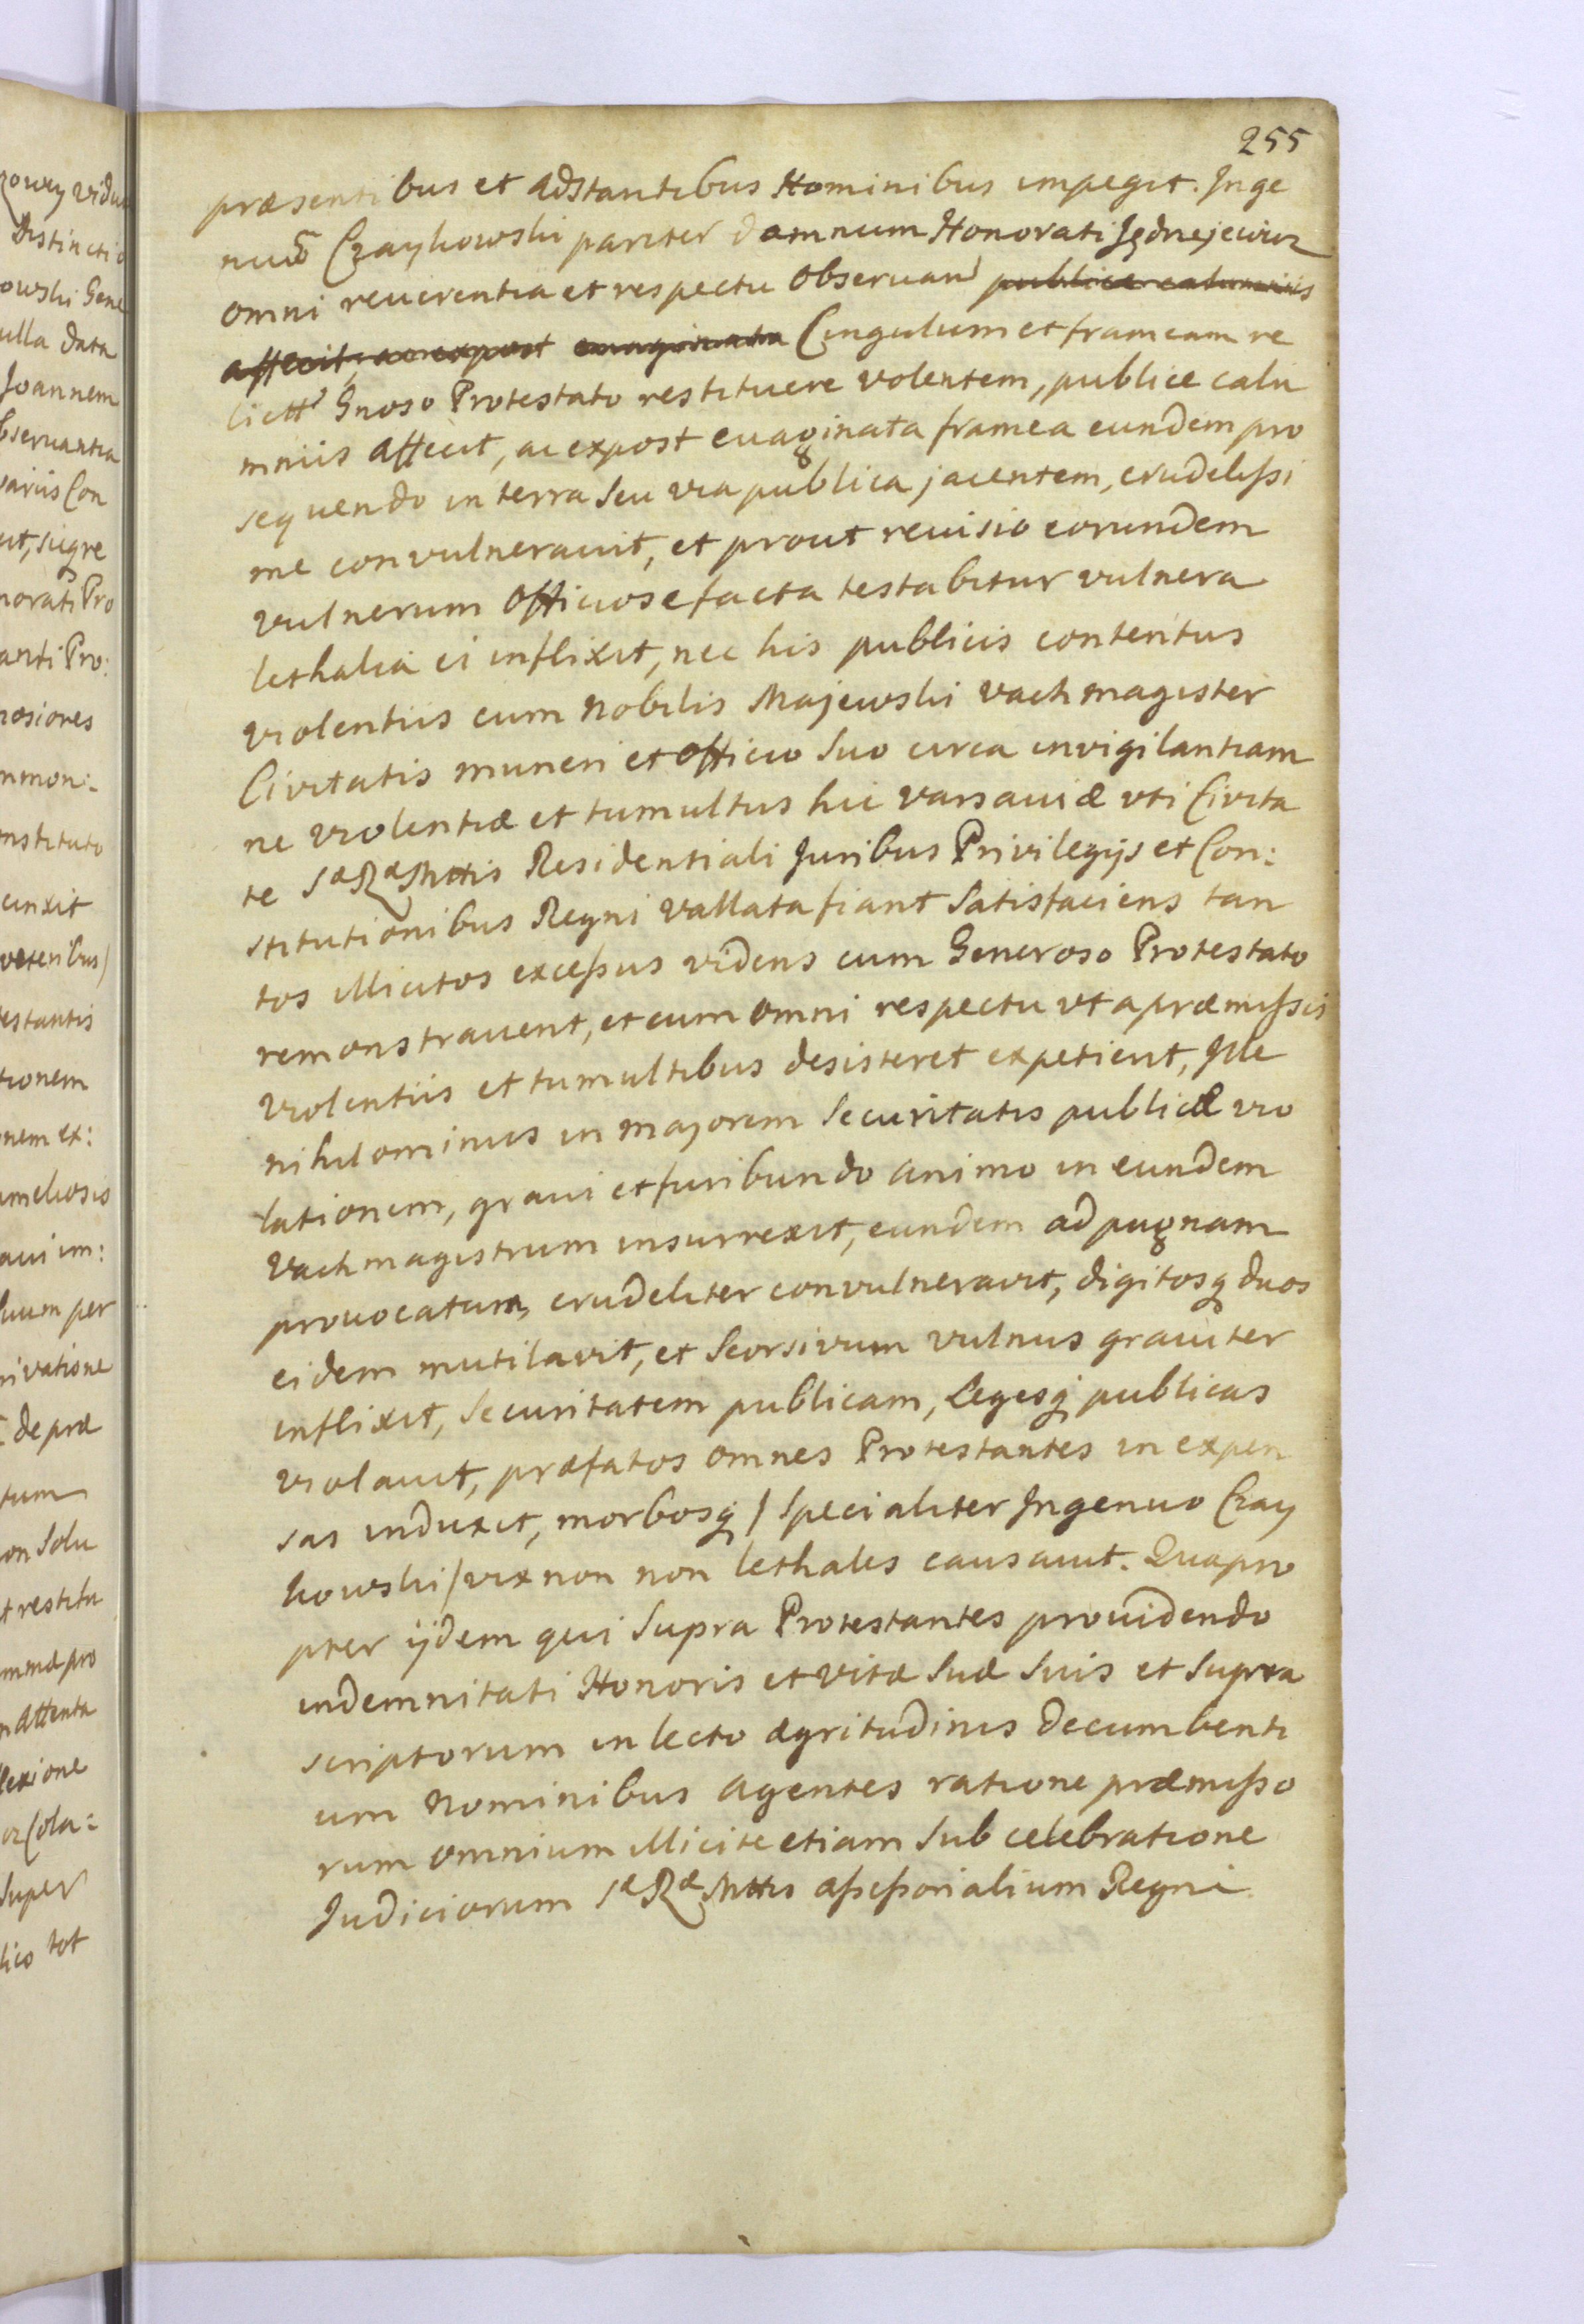 255
præsentibus et adstantibus Hominibus impegit. Inge
nuũ Czaykowski pariter damnum Honorati Jędrzejewicz
omni reuerentia et respectu obseruand publice calumniis
affecit, ac expost euaginata Cingulum et frameam re
lictt Gnoso Protestato restituere volentem, publice calu
mniis affecit, ac expost euaginata framea eundem pro
sequendo in terra seu via publica jacentem, crudelissi
me convulnerauit, et prout reuisio eorundem
vulnerum officiose facta testabitur vulnera
lethalia ei inflixit, nec his publicis contentus
violentiis cum Nobilis Majewski vachmagister
Civitatis muneri et officio suo circa invigilantiam
ne violentiæ et tumultus hic varsauiæ vti Civita
te SæRæMttis Residentiali Juribus Privilegijs et Con:
stitutionibus Regni vallata fiant satisfaciens tan
tos illicitos excessus videns cum Generoso Protestato
remonstrauerit, et cum omni respectu vt a præmissis
violentiis et tumultibus desisteret expetierit, Ille
nihilominus in majorem securitatis publicæ vio
lationem, graui et furibundo animo in eundem
vachmagistrum insurrexit, eundem ad pugnam
prouocatum, crudeliter convulneravit, digitosq duos
eidem mutilavit, et seorsivum vulnus grauiter
inflixit, securitatem publicam, Legesq publicas
violauit, præfatos omnes Protestantes in expen
sas induxit, morbosq / specialiter Ingenuo Czay
kowski / vix non non lethales causauit. Quapro
pter ijdem qui supra Protestantes prouidendo
indemnitati Honoris et vitæ suæ suis et supra
scriptorum in lecto ægritudinis decumbenti
um nominibus agentes ratione præmisso
rum omnium illicite etiam sub celebratione
Judiciorum SæRæMttis assessorialium Regni